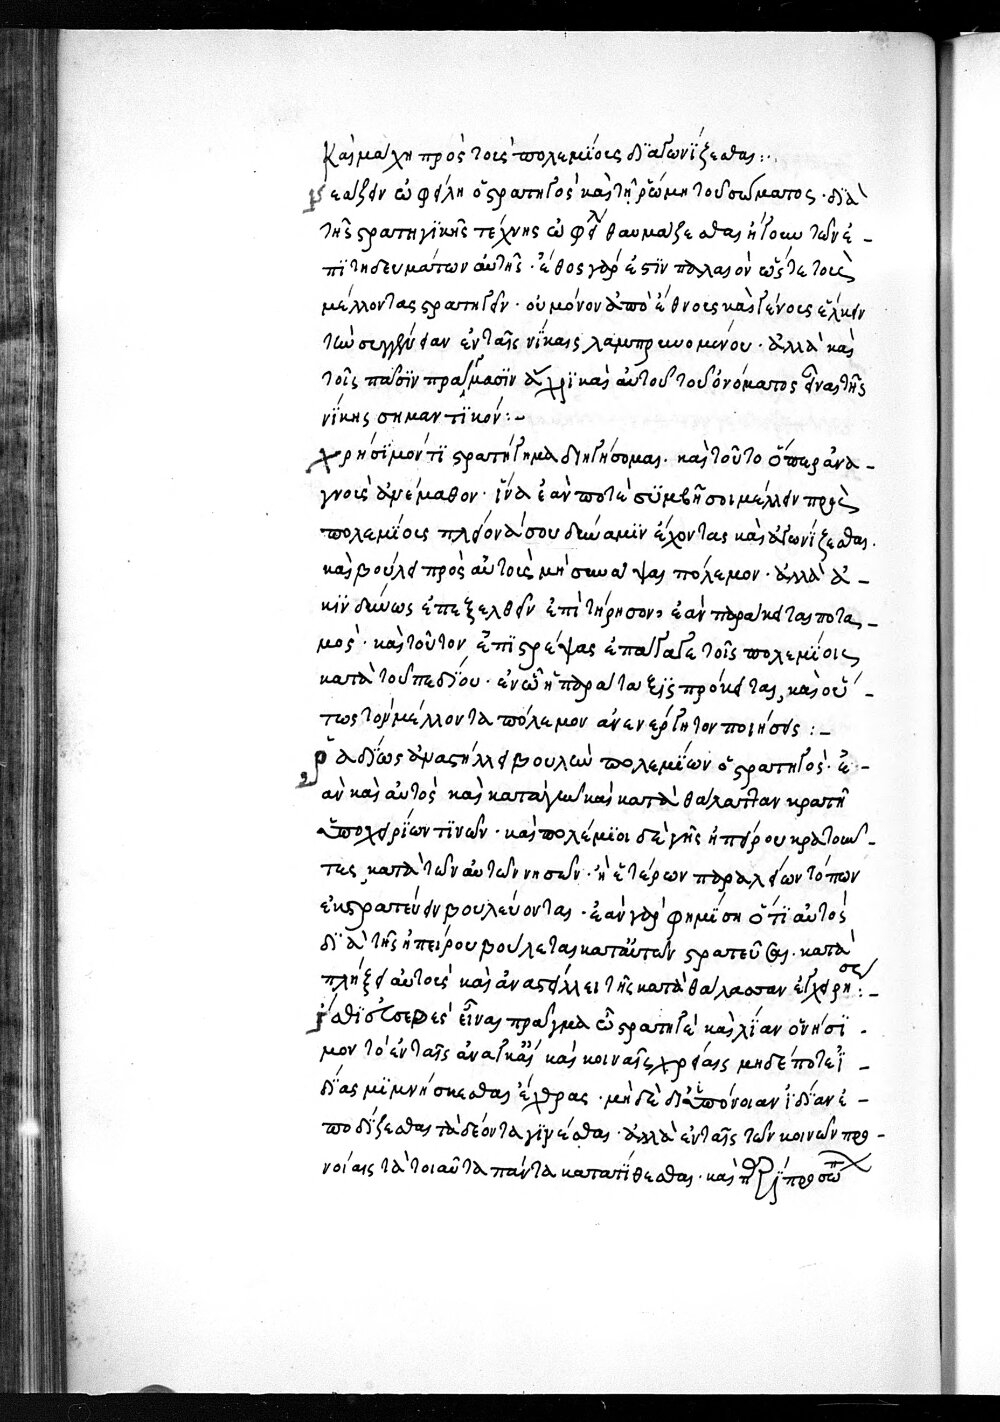 καὶ μάχη πρὸς τοὺς πολεμίους διαγωνίζεσθαι :
βεαϊζειν ὠφείλη ὁ στρατηγὸς καὶ τῆ ῥώμη τοῦ σώματος · διὰ
τῆς στρατηγικῆς τέχνης ὠφείλει θαυμάζεσθαι ἤγουν τῶν ἐ-
πιτηδευμάτων αὐτῆς · ἔθος γὰρ ἐστὶν παλαιὸν ὥστε τοὺς
μέλλοντας στρατηγεῖν · οὐ μόνον ἀπὸ ἔθνους καὶ γένους ἕλκειν
τὴν συγγένειαν ἐν ταῖς νίκαις λαμπρευομένου · ἀλλὰ καὶ
τοῖς πᾶσιν πράγμασιν ἄχρι καὶ αὐτοῦ τοῦ ὀνόματος εἶναι τῆς
νίκης σημαντικόν :-
χρήσιμόν τι στρατήγημα διηγήσομαι · καὶ τοῦτο ὅπερ ἀνα-
γνοὺς ἀνέμαθον · ἵνα ἐάν ποτε συμβῆ σοι μέλλειν πρὸς
πολεμίους πλείονά σου δύναμιν ἔχοντας καὶ ἀγωνίζεσθαι ·
καὶ βούλει πρὸς αὐτοὺς μὴ συνάψαι πόλεμον · ἀλλὰ ἀ-
κινδύνως ἐπεξελθεῖν ἐπιτήρησον, ἐὰν παράκειται ποτα-
μός · καὶ τοῦτον ἐπιστρέψας ἐπάγαγε τοῖς πολεμίοις
κατὰ τοῦ πεδίου · ἐν ᾧ ἡ παράταξις πρόκειται, καὶ οὕ-
τως τὸν μέλλοντα πόλεμον ἀνενέργητον ποιήσεις :-
ῥαδίως ἀναστήλλει βουλὴν πολεμίων ὁ στρατηγὸς · ἐ-
ὰν καὶ αὐτὸς καὶ κατὰ γῆν καὶ κατὰ θάλατταν κρατῆ
ὑποχειρίων τινῶν · καὶ πολέμιοι δὲ γῆς ἠπείρου κρατοῦν-
τες, κατὰ τῶν αὐτῶν νησῶν · ἢ ἑτέρων παραλείων τόπων
ἐκστρατεύειν βουλεύονται · ἐὰν γὰρ φημίση ὅτι αὐτὸς
διὰ τῆς ἠπείρου βούλεται κατ' αὐτῶν στρατεῦσαι · κατα
πλήξει αὐτοὺς καὶ ἀναστέλλει τῆς κατὰ θάλασσαν ἐγχειρήσεως :-
εἶναι πρᾶγμα ὦ στρατηγὲ καὶ λίαν ὀνήσι-
μον τὸ ἐν ταῖς ἀναγκαίαις καὶ κοιναῖς χρείαις μηδέποτε ἰ-
δίας μιμνήσκεσθαι ἔχθρας · μηδὲ δι' ἀπόνοιαν ἰδίαν ἐ-
ποδίζεσθαι τὰ δέοντα γίνεσθαι · ἀλλὰ ἐν ταῖς τῶν κοινῶν προ-
νοίαις τὰ τοιαῦτα πάντα κατατίθεσθαι · καὶ